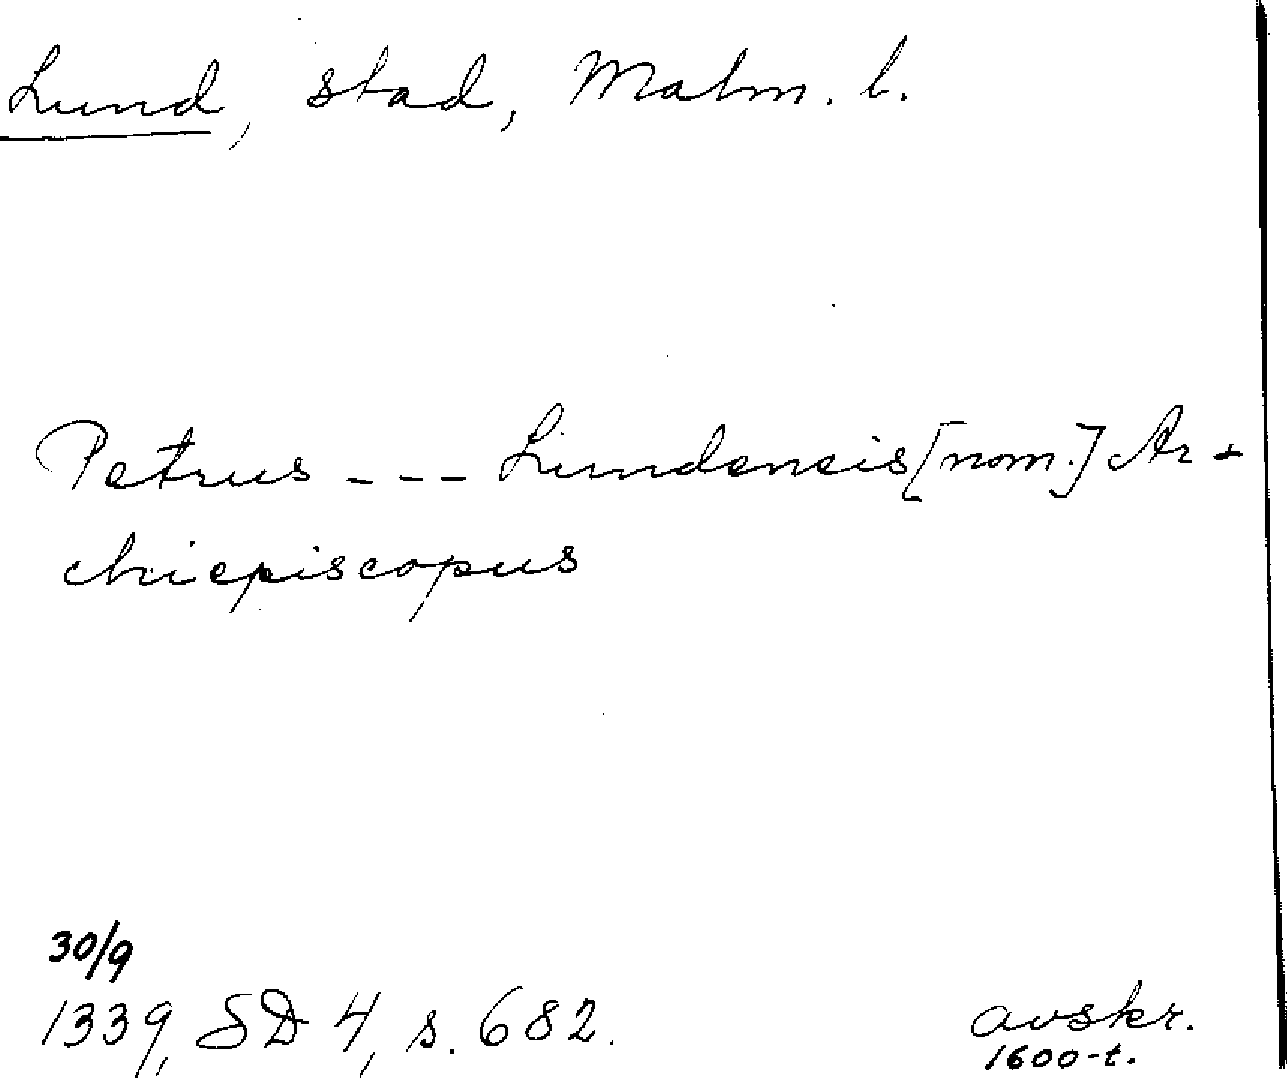 Lund, stad, Malm. l.
Petrus --- Lundensis [nom.] Ar-
chiepiscopus
30/9
1339, SD 4, s. 682.
avskr.
1600-t.